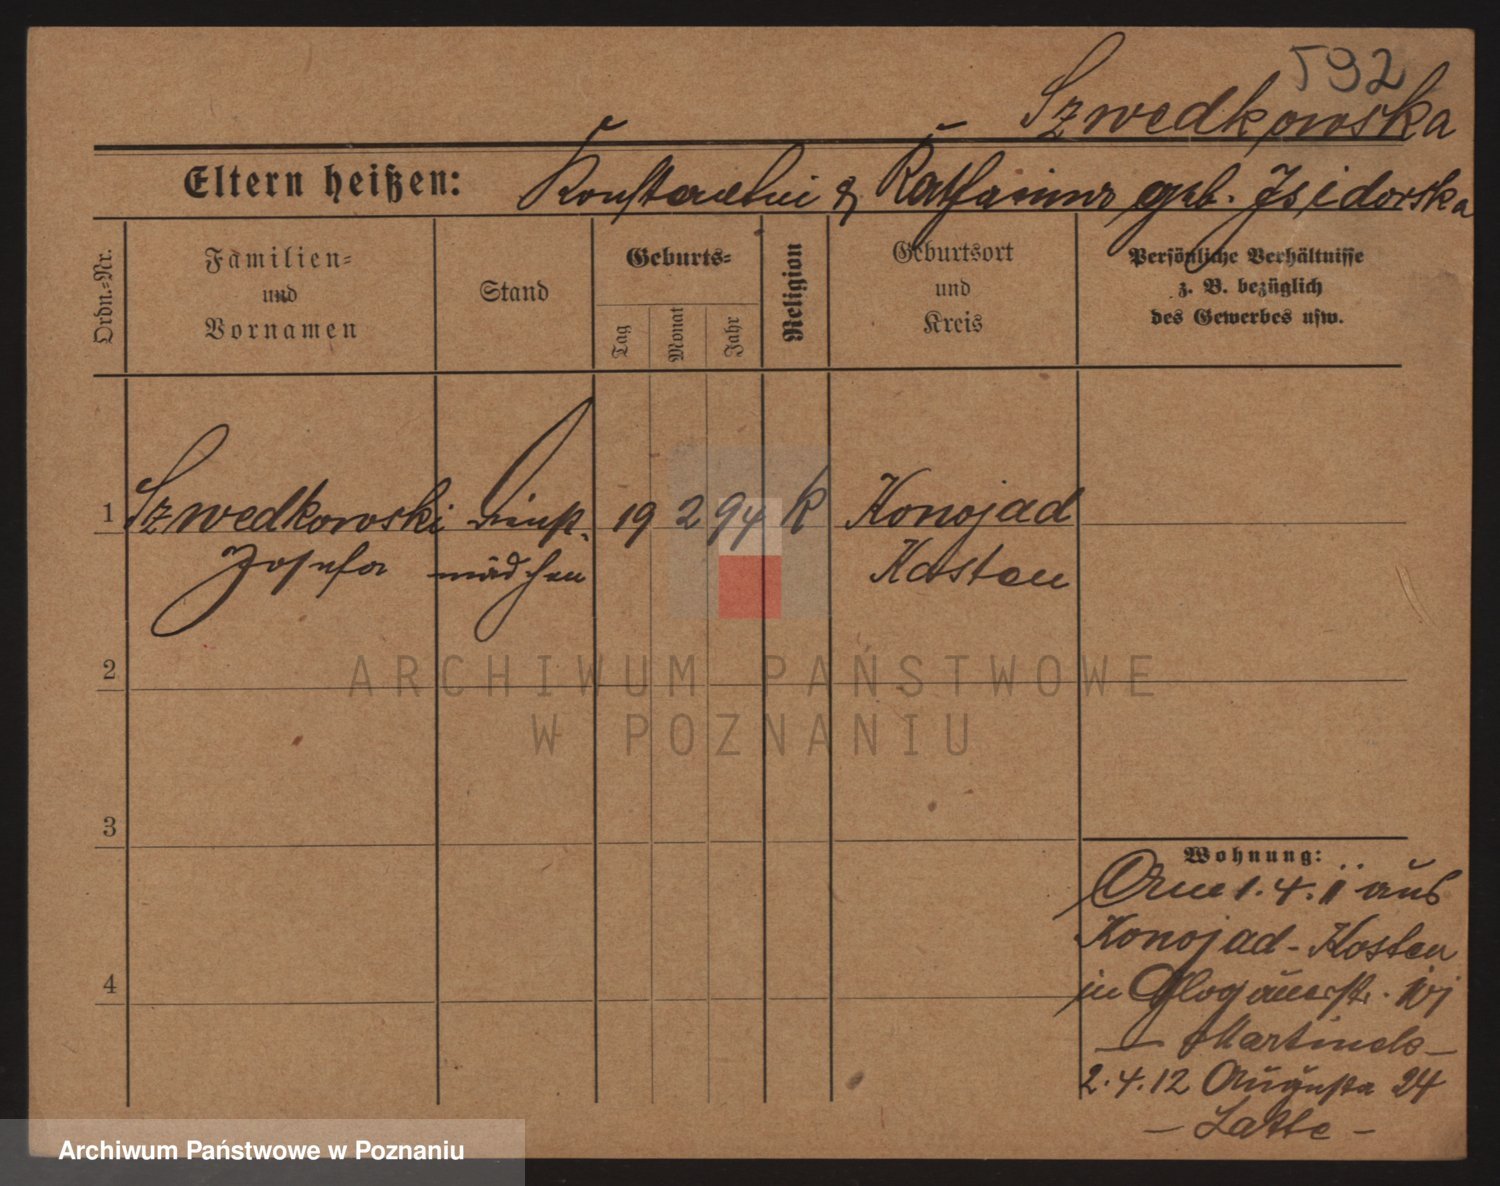 592
Szwedkowska
Eltern heißen: Konstantin & Katharina geb. Isidorska
Ordn.-Nr.
Familien-
und
Vornamen
Stand
Geburts-
Tag
Monat
Jahr
Religion
Geburtsort
und
Kreis
Persönliche Verhältnisse
z. B. bezüglich
des Gewerbes usw.
1 Szwedkowski Dienst- 19 2 94 k Konojad
Josefa mädchen Kosten
ARCHIWUM PAŃSTWOWE
W POZNANIU
2
3
4
Wohnung:
Am 1.4.11 aus
Konojad - Kosten
in Glogauerstr.
— Martinek —
2.4.12 Augusta 24
— Latte —
Archiwum Państwowe w Poznaniu